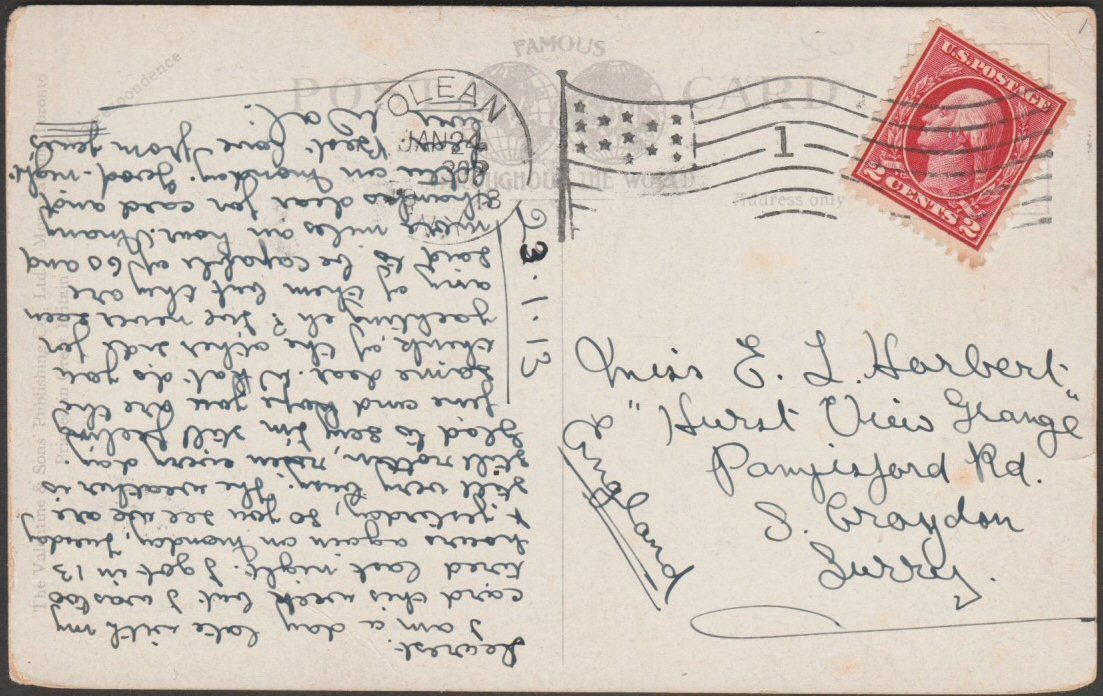 FAMOUS
POST CARD
THROUGHOUT THE WORLD
Address only
OLEAN
JAN 2
30P
1
U.S. POSTAGE
2 CENTS 2
23.1.13
Dearest.
I am a day late with my
card this week but I was too
tired last night. I got in 13
hours again on Monday, Tuesday
& yesterday, so you see we are
still very busy. The weather is
still rotten, rain every day.
Glad to say I'm still feeling
fine and hope you are the
same dear. What do you
think of the other side for
yachting eh? I've never seen
any of them but they are
said to be capable of 60 and
more miles an hour. Many
thanks dear for card and
on Monday. Good-night.
Best love from yours
Wal.
Miss E. L. Harbert.
"Hurst View Grange"
Pampisford Rd.
S. Croydon
Surry.
England
The Valentine & Sons Publishing Co. Ltd.
Toronto
Printed in Great Britain